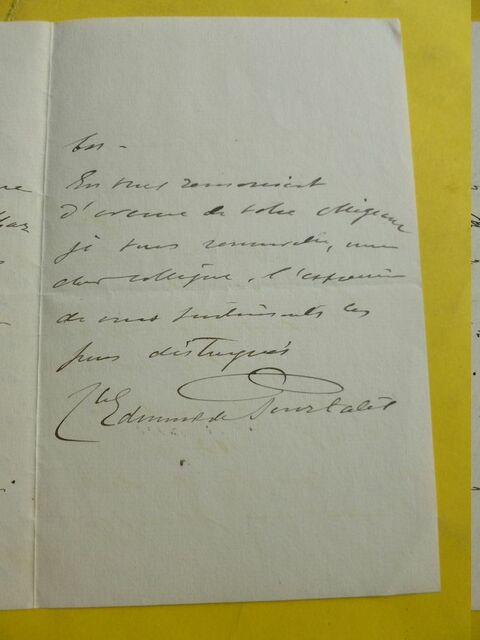 En vous remerciant
d'avance de votre
je vous renouvelle, mon
cher collègue, l'expression
de mes sentiments les
plus distingués
Cte Edmond de Pourtalès